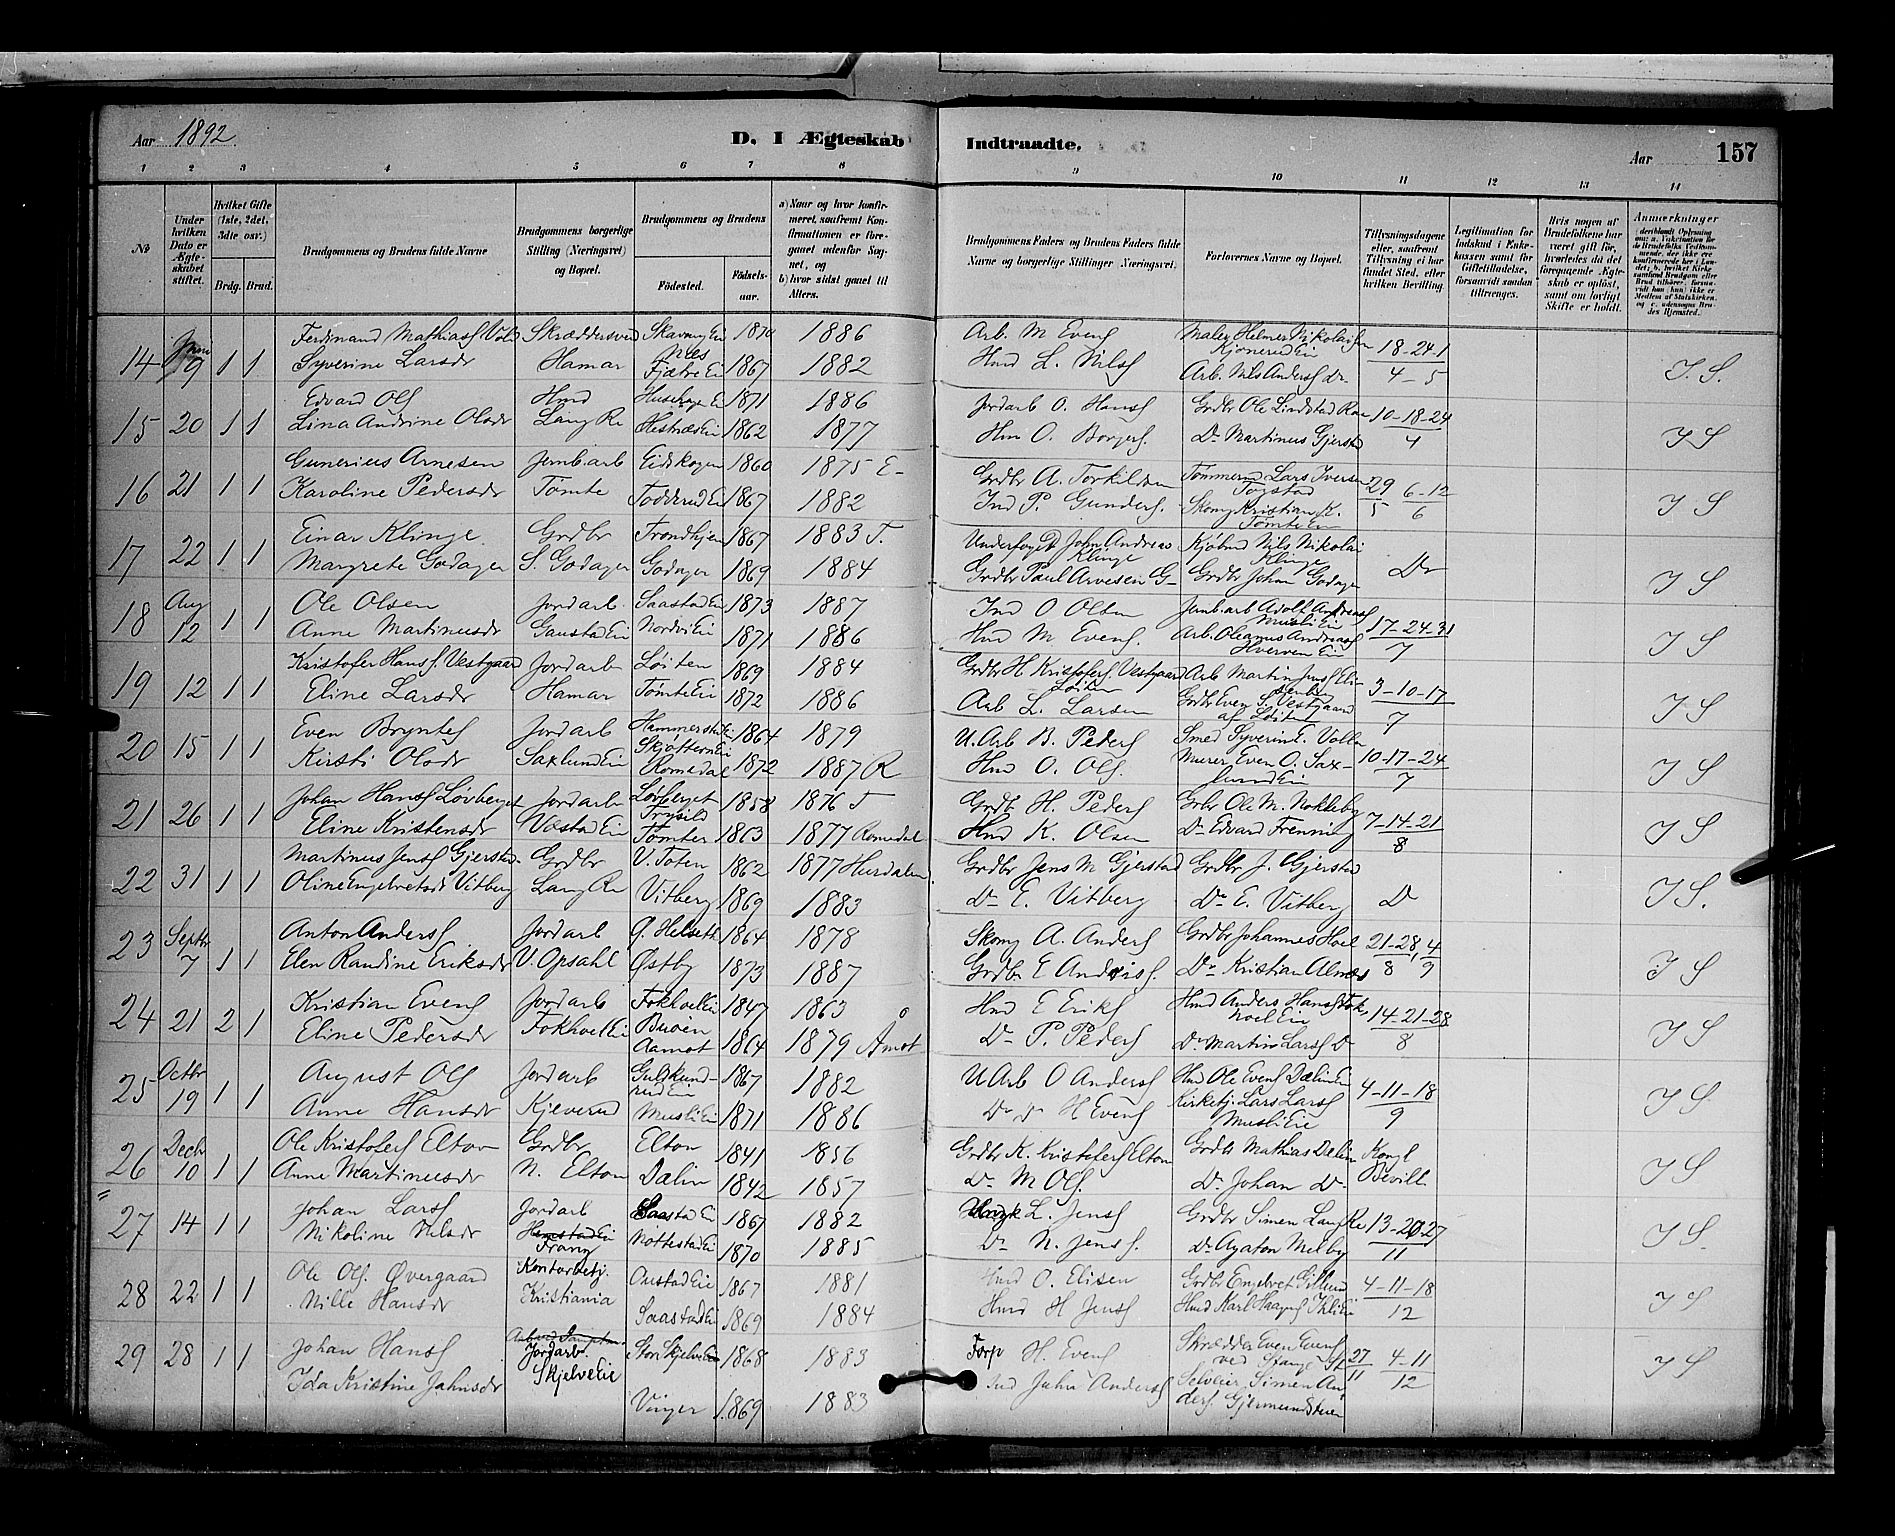 Aar 1892.
D. I Ægteskab Indtraadte.
Aar 157
1 2 3 4 5 6 7 8 9 10 11 12 13 14
No
Under hvilken Dato er Ægteskabet stiftet.
Hvilket Gifte (1ste, 2det, 3dte osv.)
Brdg. Brud.
Brudgommens og Brudens fulde Navne
Brudgommens borgerlige Stilling (Næringsvei) og Bopæl.
Brudgommens og Brudens
Fødested.
Fødselsaar.
a) Naar og hvor konfirmeret, saafremt Konfirmationen er foregaaet udenfor Sognet, og
b) hvor sidst gaaet til Alters.
Brudgommens Faders og Brudens Faders fulde Navne og borgerlige Stillinger (Næringsvei)
Forlovernes Navne og Bopæl.
Tillysningsdagene eller, saafremt Tillysning ei har fundet Sted, efter hvilken Bevilling.
Legitimation for Indskud i Enkekassen samt for Giftetilladelse, forsaavidt saadan tiltrænges.
Hvis nogen af Brudefolkene har været gift før, hvorledes da det foregaaende Ægteskab er opløst, samt om lovligt Skifte er holdt.
Anmærkninger
14 Juni 9 1 1 Ferdinand Mathiass Vold Skræddersvend 1870 1886 Arb. M Evens Maler Helmer Nikolaisen 18-24-1
Syverine Larsdr Hamar Fjætre Ei 1867 1882 Hmd L. Nils Arb. Nils Anders Dr. 4-5 I. S.
15 20 1 1 Edvard Ols Hmd Husehagen Ei 1871 1886 Jordarb O. Hans Grdbr Ole Lindstad Rae 10-18-24
Lina Andrine Olsdr Lang Re 1862 1877 Hm O. Borgers. Do Martinus Gjersta 4 I S
16 21 1 1 Gunerius Arnesen Jernb.arb Eidskogen 1860 1875 E- Grdbr A. Torkildsen Tømmerm Lars Iversen Togstad 29/5 6-12/6
Karoline Pedersdr Tømte Todderud Ei 1867 1882 Ind P. Gunders. Skom Kristian K. Tømte Ei I S
17 22 1 1 Einar Klinge Grdbr Trondhjem 1867 1883 T. Underfoged John Andreas Klinge Kjøbmd Nils Nikolai Klinge
Margrete Godager S. Godager Godager 1869 1884 Grdbr Paul Arnesen G- Grdbr Johan Godager Do I S
18 Aug 12 1 1 Ole Olsen Jordarb. Saastad Ei 1873 1887 Ind O Olsen Jernb.arb Adolf Andreas Musli Ei 17-24-31
Anne Martinusdr Gaustad Ei Nordvi Ei 1871 1886 Hmd M. Evens. Arb. Oleanus Andreas Hverven Ei 7 I S
19 12 1 1 Kristofer Hans. Vestgaard Jordarb Løiten 1869 1884 Grdbr H Kristofers. Vestgaard Løiten Arb Martin Jens 3-10-17
Eline Larsdr Hamar Tømte Ei 1872 1886 Arb L. Larsen Grdbr Even S. Vestgaard af Løiten 7 I S
20 15 1 1 Even Bryntes Jordarb Hammerstad Ei 1864 1879 U.Arb B. Peders Smed Syverin E. Volla 10-17-24
Kirsti Olsdr Saxlund Ei Skjøttern Ei Romedal 1872 1887 R Hmd O. Ols. Murer Even O. Saxlund Ei 7 I S
21 26 1 1 Johan Hans Løvberget Jordarb Løvberget Trysil 1858 1876 T Grdb. H. Peders Grbr Ole M. Nokleby 7-14-21
Eline Kristensdr Vostad Ei Tømter 1863 1877 Romedal Hmd K. Olsen Do Edvard Frenning 8 I S
22 31 1 1 Martinus Jens Gjerstad Grdbr V. Toten 1862 1877 Hurdalen Grdbr Jens M Gjerstad Grdbr J. Gjerstad
Oline Engebretsdr Vitberg Lang Re Vitberg 1869 1883 Do E. Vitberg Do E. Vitberg D I S.
23 Septbr 7 1 1 Anton Anders Jordarb Ø. Helseth 1864 1878 Skomg A. Anders Grdbr Johannes Hoel 21-28/8, 4/9
Elen Randine Eriksdr V. Opsahl Østby 1873 1887 Grdbr E Anders. Do Kristian Almes I S
24 21 2 1 Kristian Evens Jordarb Fokhoel Ei 1847 1863 Hmd E Eriks Hmd Anders Hans Fokhoel Ei 14-21-28
Eline Pedersdr Fokhoel Ei Aamot 1864 1879 Åmot Do P. Peders Do Martin Lars D 8 I S
25 Octbr 19 1 1 August Ols Jordarb Guldkundrud Ei 1867 1882 U Arb O Anders Hmd Ole Evens Dælin Ei 4-11-18
Anne Hansdr Kjeverud Musli Ei 1871 1886 Do Do H Evens Kirketj. Lars Lars Musli Eie 9 I S
26 Decbr 10 1 1 Ole Kristofers Elton Grdbr Elton 1841 1856 Grdbr K. Kristofers Elton Grdbr Mathias Dælin Kongl Bevill
Anne Martinusdr N. Elton Dælin 1842 1857 Do M Ols. Do Johan Do I S
27 14 1 1 Johan Lars Jordarb Saastad Ei 1867 1882 L. Jens Grdbr Simen Lang Re 13-20-27
Nikoline Nilsdr Hemstad Ei Frang Nottestad Ei 1870 1885 Do N. Jens. Do Agaton Melby 11 I S.
28 22 1 1 Ole Ols. Øvergaard Kontorbetj. Oustad Ei 1867 1881 Hmd O. Elisen Grdbr Engebret Gillund 4-11-18
Nille Hansdr Kristiania Saastad Ei 1869 1884 Hmd H Jens Hmd Karl Haagens Ihli Ei 12 I S
29 28 1 1 Johan Hans Jordarb. Skjelve Eie Stor Skjelve Ei 1868 1883 Torp H. Evens Skrædder Even Evens ved Stange St 27/11 4-11/12
Ida Kristine Jahnsdr Vinger 1869 1883 Ind Jahn Anders Selveier Simen Anders. Gjermundstuen I S